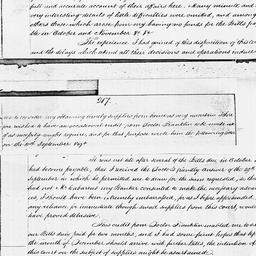 full and accurate account of their affairs here. Many minute and
very interesting details of little difficulties were omitted, and among
others those which arose from my having no funds for the Bills paya
ble in October and November &c &c
The experience I had gained of this disposition of this Court
and the delays which attend all their decisions and operations induced
217.
me to consider my obtaining timely supplies from hence as very uncertain I there
fore wished to have an occasional credit from Doctor Franklin to be made use
of as necessity might require, and for that purpose wrote him the following letter
on the 20th September 1781
It was not till after several of the Bills due in October
had become payable, that I received the Doctor's friendly answer of the 29th
September in which he permitted me to draw for the sum requested, so that
had not Mr Cabarrus my Banker consented to make the necessary advan
ces, I should have been extremely embarrassed, for as I hoped
any reliance, for immediate though small supplies from this court, would
have proved delusive.
This credit from Doctor Franklin enabled me to see
our Bills duly paid for two months, and I had some ground hopes that by
the month of December should arrive with further bills, the intention of
this Court on the subject of supplies might be ascertained.